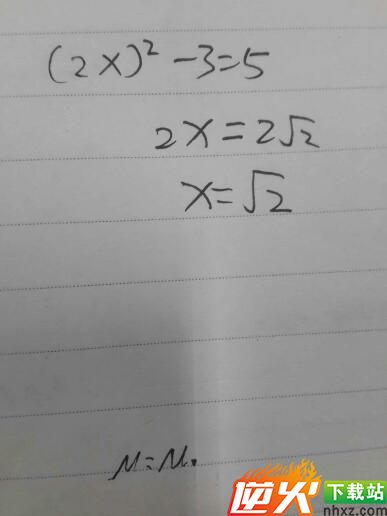 (2x)² -3=5
2x=2√2
x=√2
逆火 下载站
nhxz.com